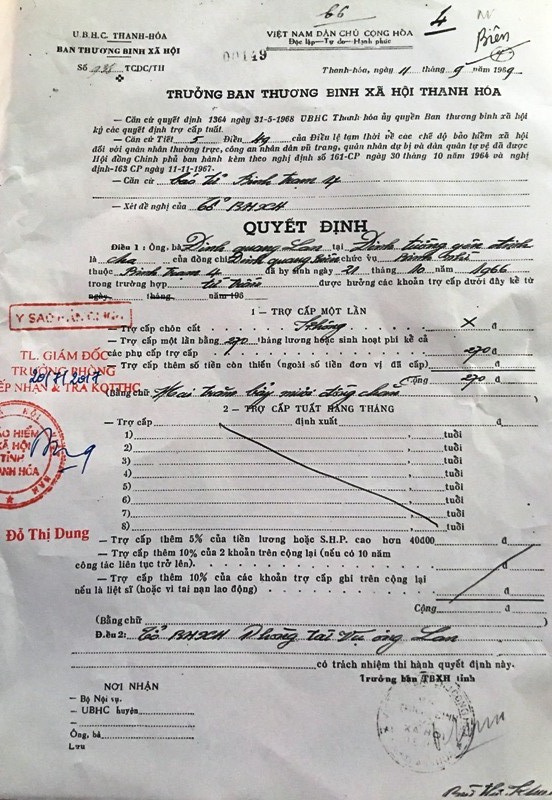 66
4
Biên
U.B.H.C. THANH-HÓA
BAN THƯƠNG BINH XÃ HỘI
Số TCDC/TH
VIỆT NAM DÂN CHỦ CỘNG HÒA
Độc lập — Tự do — Hạnh phúc
00149
Thanh-hóa, ngày 11 tháng 9 năm 1969
TRƯỞNG BAN THƯƠNG BINH XÃ HỘI THANH HÓA
— Căn cứ quyết định 1364 ngày 31-5-1968 UBHC Thanh hóa ủy quyền Ban thương binh xã hội
ký các quyết định trợ cấp tuất.
— Căn cứ Tiết 5 Điều 49 của Điều lệ tạm thời về các chế độ bảo hiểm xã hội
đối với quân nhân thường trực, công an nhân dân vũ trang, quân nhân dự bị và dân quân tự vệ đã được
Hội đồng Chính phủ ban hành kèm theo nghị định số 161-CP ngày 30 tháng 10 năm 1964 và nghị
định-163 CP ngày 11-11-1967.
— Căn cứ Báo tử Binh trạm 4
— Xét đề nghị của Tổ BHXH
QUYẾT ĐỊNH
Điều 1 : Ông, bà Đinh quang Lan tại Định tường yên định
là cha của đồng chí Đinh quang Biên chức vụ
thuộc Binh trạm 4 đã hy sinh ngày 21 tháng 10 năm 1966
trong trường hợp tử trận được hưởng các khoản trợ cấp dưới đây kể từ
ngày, tháng năm 196
1 — TRỢ CẤP MỘT LẦN
— Trợ cấp chôn cất Không x đ
— Trợ cấp một lần bằng 270 tháng lương hoặc sinh hoạt phí kể cả
các phụ cấp trợ cấp 270 đ
— Trợ cấp thêm số tiền còn thiếu (ngoài số tiền đơn vị đã cấp) đ
Cộng 270 đ
(Bằng chữ) Hai trăm bảy mươi đồng chẵn )
2 — TRỢ CẤP TUẤT HÀNG THÁNG
— Trợ cấp định xuất đ
1) tuổi
2) tuổi
3) tuổi
4) tuổi
5) tuổi
6) tuổi
7) tuổi
8) tuổi
— Trợ cấp thêm 5% của tiền lương hoặc S.H.P. cao hơn 40đ00 đ
— Trợ cấp thêm 10% của 2 khoản trên cộng lại (nếu có 10 năm
công tác liên tục trở lên). đ
— Trợ cấp thêm 10% của các khoản trợ cấp ghi trên cộng lại
nếu là liệt sĩ (hoặc vì tai nạn lao động) đ
Cộng đ
(Bằng chữ )
Điều 2: Tổ BHXH Phòng tài vụ ông Lan
có trách nhiệm thi hành quyết định này.
Trưởng ban TBXH tỉnh
NƠI NHẬN
— Bộ Nội vụ.
— UBHC huyện
Ông, bà
Lưu
Y SAO BẢN CHÍNH
TL. GIÁM ĐỐC
TRƯỞNG PHÒNG
TIẾP NHẬN & TRẢ KQTTHC
20/7/2017
BẢO HIỂM
XÃ HỘI
TỈNH
THANH HÓA
Đỗ Thị Dung